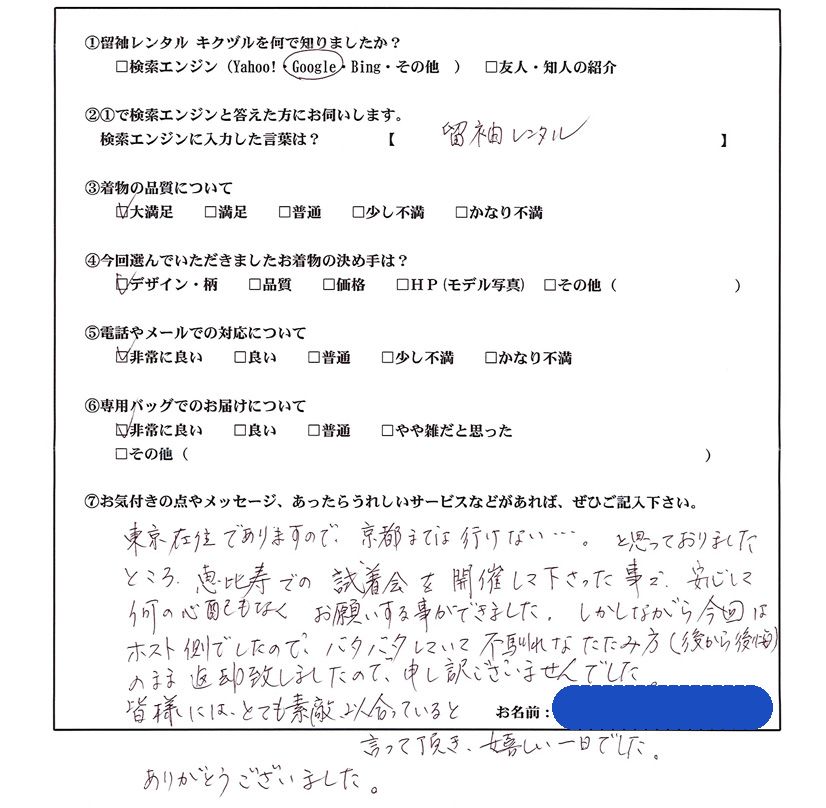 ①留袖レンタル キクヅルを何で知りましたか？
□検索エンジン（Yahoo!・Google・Bing・その他　）　□友人・知人の紹介
②①で検索エンジンと答えた方にお伺いします。
検索エンジンに入力した言葉は？　【　留袖レンタル　】
③着物の品質について
□大満足　□満足　□普通　□少し不満　□かなり不満
④今回選んでいただきましたお着物の決め手は？
□デザイン・柄　□品質　□価格　□ＨＰ(モデル写真)　□その他（　）
⑤電話やメールでの対応について
□非常に良い　□良い　□普通　□少し不満　□かなり不満
⑥専用バッグでのお届けについて
□非常に良い　□良い　□普通　□やや雑だと思った
□その他（　）
⑦お気付きの点やメッセージ、あったらうれしいサービスなどがあれば、ぜひご記入下さい。
東京在住でありますので、京都までは行けない…。と思っておりました
ところ、恵比寿での試着会を開催して下さった事で、安心して
何の心配もなくお願いする事ができました。しかしながら今回は
ホスト側でしたので、バタバタしていて不馴れなたたみ方（後から後悔）
のまま返却致しましたので、申し訳ございませんでした。
皆様には、とても素敵、似合っていると
お名前：
言って頂き、嬉しい一日でした。
ありがとうございました。